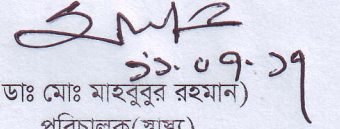 ১১.০৭.১৭
ডাঃ মোঃ মাহবুবুর রহমান)
পরিচালক(স্বাস্থ্য)